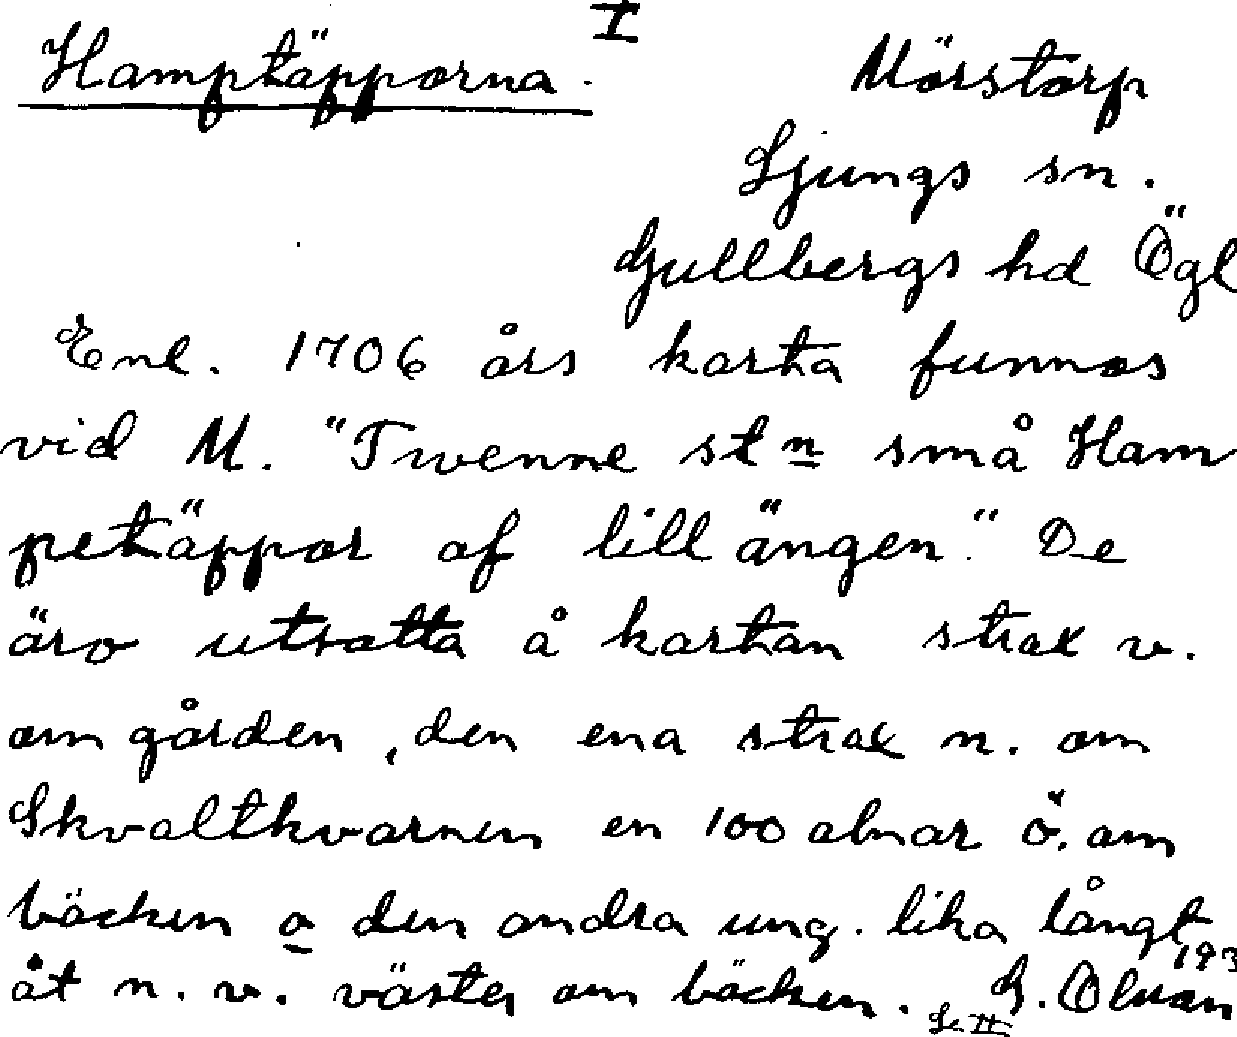 I
Hamptäpporna.
Mörstorp
Ljungs sn.
Gullbergs hd Ögl
Enl. 1706 års karta funnos
vid M. "Twenne st n små Ham
petäppor af lill ängen." De
äro utsatta å kartan strax v.
om gården, den ena strax n. om
Skvaltkvarnen en 100 alnar ö. om
bäcken o den andra ung. lika långt
åt n. v. väster om bäcken. Se II G. Olman
193